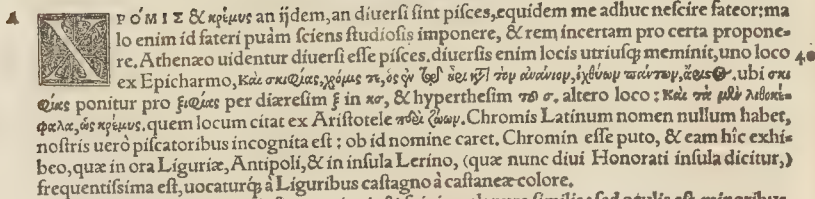 N ΡΌΜΙΣ & κρέμυς an ijdem, an diuersi sint pisces, equidem me adhuc nescire fateor; ma
lo enim id fateri quàm sciens studiosis imponere, & rem incertam pro certa propone-
re. Athenæo uidentur diuersi esse pisces. diuersis enim locis utriusq; meminit, uno loco 40
ex Epicharmo, Καὶ σκιφίας, χρόμις τε, ὃς ἐν τῷ ἦρι τὸν ἀνάνιον, ἰχθύων πάντων, ἄριστος. ubi σκι
φίας ponitur pro ξιφίας per diæresim ξ in κσ, & hyperthesim τοῦ σ. altero loco: Καὶ τὰ μὲν λιθοκέ-
φαλα, ὡς κρέμυς. quem locum citat ex Aristotele περὶ ζώων. Chromis Latinum nomen nullum habet,
nostris uerò piscatoribus incognita est; ob id nomine caret. Chromin esse puto, & eam hîc exhi-
beo, quæ in ora Liguriæ, Antipoli, & in insula Lerino, (quæ nunc diui Honorati insula dicitur,)
frequentissima est, uocaturq; à Liguribus castagno à castaneæ colore.